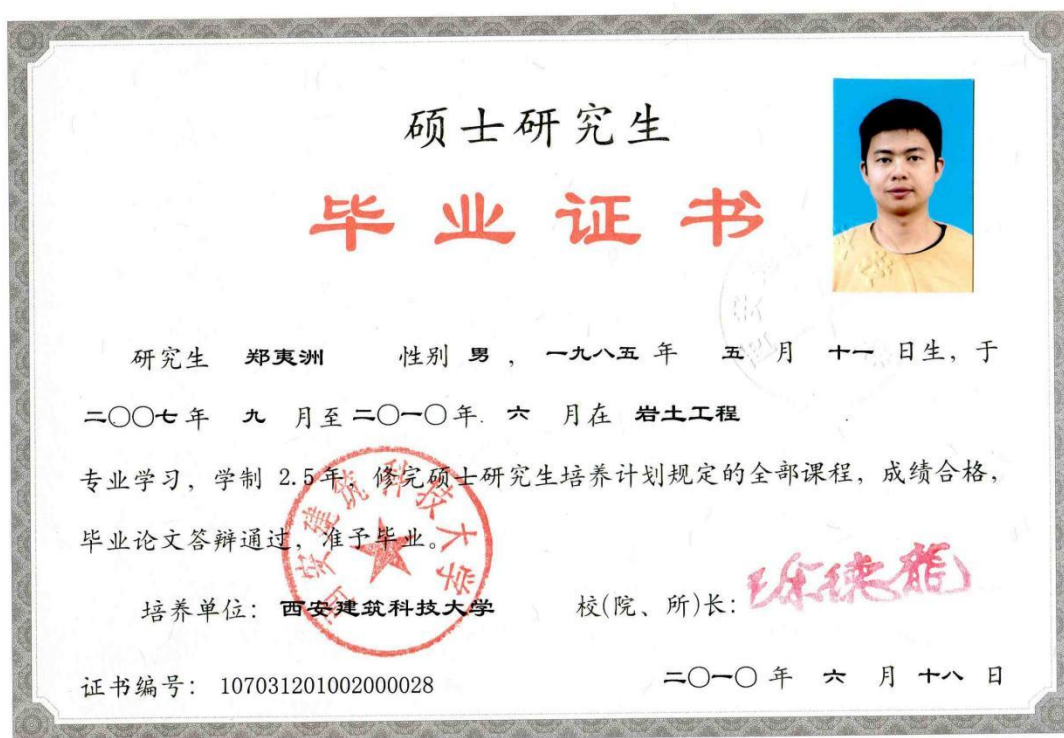 硕士研究生
毕业证书
研究生 郑夷洲 性别 男 ， 一九八五 年 五 月 十一 日生，于
二〇〇七年 九 月至二〇一〇年. 六 月在 岩土工程
专业学习，学制 2.5年，修完硕士研究生培养计划规定的全部课程，成绩合格，
毕业论文答辩通过，准予毕业。
西安建筑科技大学
培养单位： 西安建筑科技大学 校(院、所)长： 徐德龍
证书编号： 107031201002000028 二〇一〇 年 六 月 十八 日